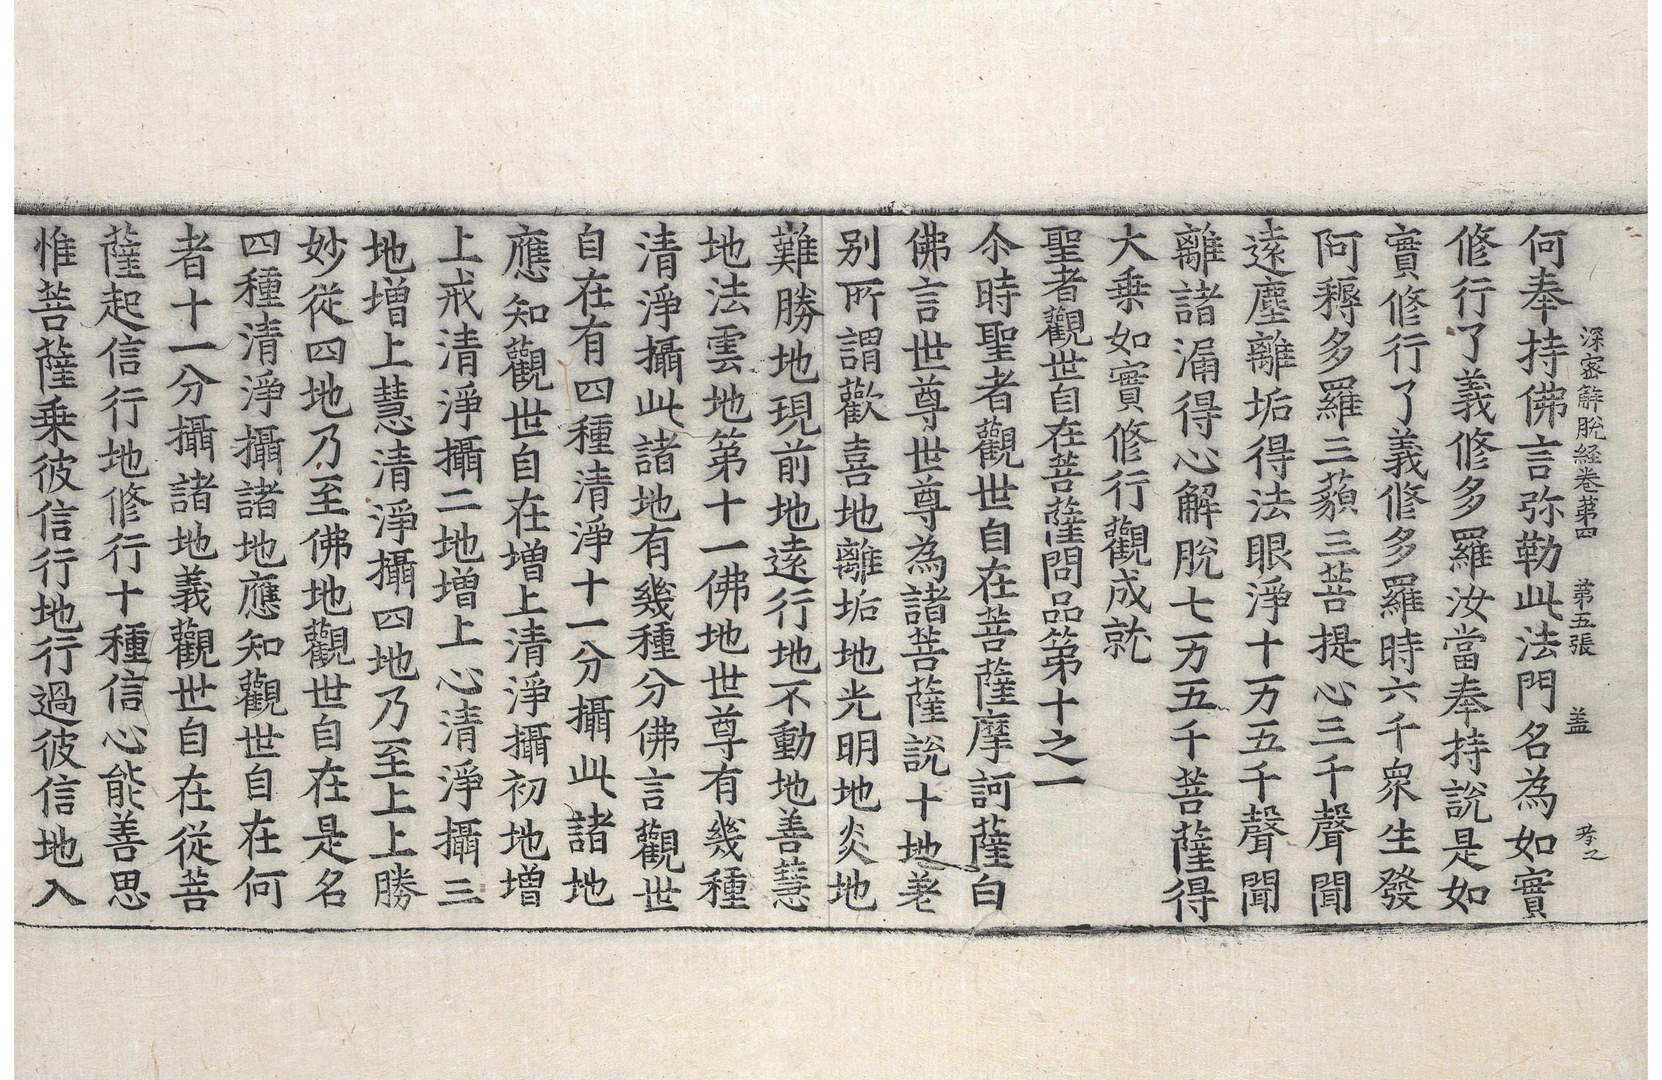 深密解脫経卷苐四　苐五張　盖
何奉持佛言弥勒此法門名為如實
修行了義修多羅汝當奉持說是如
實修行了義修多羅時六千衆生發
阿耨多羅三藐三菩提心三千聲聞
遠塵離垢得法眼淨十万五千聲聞
離諸漏得心解脫七万五千菩薩得
大乗如實修行觀成就
聖者觀世自在菩薩問品第十之一
尒時聖者觀世自在菩薩摩訶薩白
佛言世尊世尊為諸菩薩說十地差
别所謂歡喜地離垢地光明地炎地
難勝地現前地遠行地不動地善慧
地法雲地第十一佛地世尊有幾種
清淨攝此諸地有幾種分佛言觀世
自在有四種清淨十一分攝此諸地
應知觀世自在増上清淨攝初地増
上戒清淨攝二地増上心清淨攝三
地増上慧清淨攝四地乃至上上勝
妙從四地乃至佛地觀世自在是名
四種清淨攝諸地應知觀世自在何
者十一分攝諸地義觀世自在從菩
薩起信行地修行十種信心能善思
惟菩薩乗彼信行地行過彼信地入